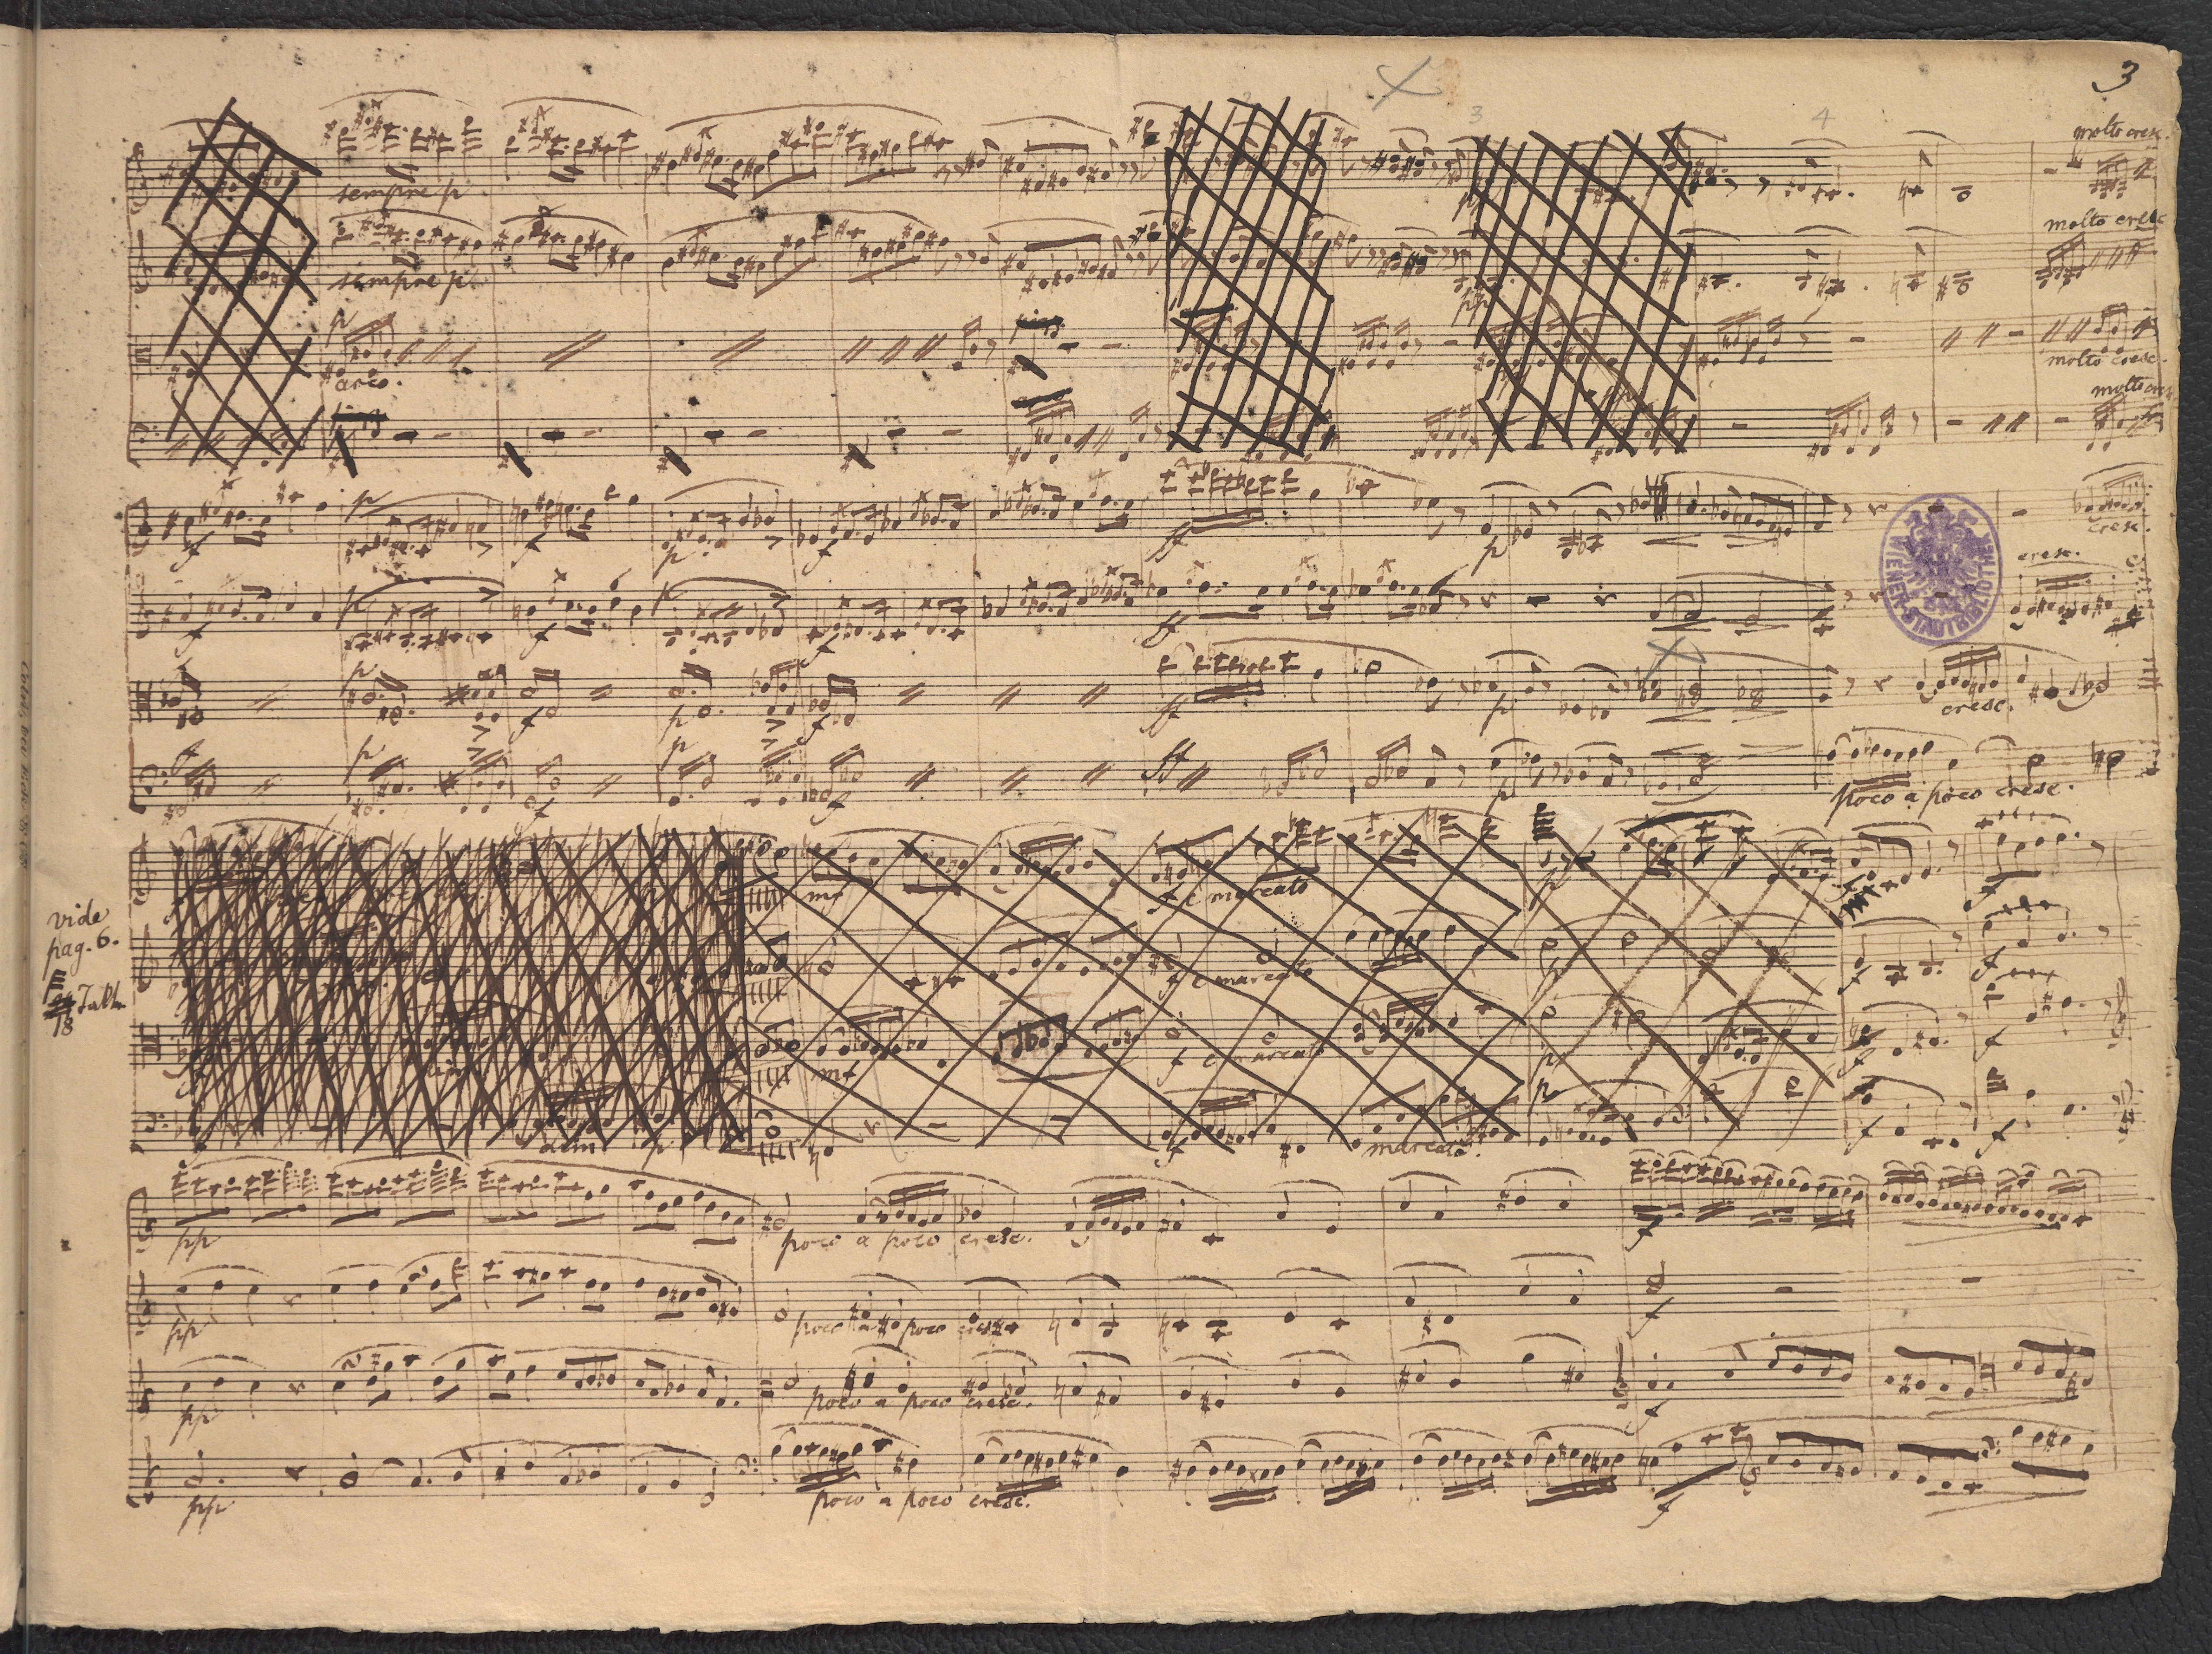 3
2 1
3 4
molto cresc.
sempre p.
molto cresc
sempre p.
pp
p
arco.
molto cresc.
molto cresc
f p f p f ff p
cresc.
cresc.
f p f p f ff
WIENER STADTBIBLIOTHEK
p f p f ff p
cresc.
f p f p f ff p
poco a poco cresc.
vide
pag. 6.
18 Takte
mf f e marcato p f f
f e marcato p f f
mf f e marcato p f f
dim p f marcato. p f f
pp poco a poco cresc. f
pp poco a poco cresc f
pp poco a poco cresc. f
pp poco a poco cresc. f